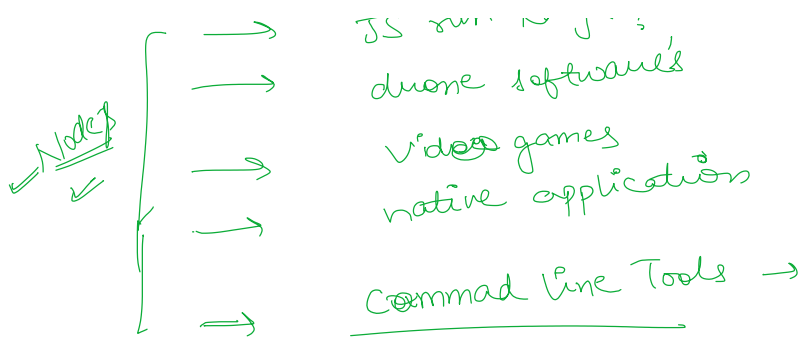 JS run
drone software's
NodeJS
video games
native application
Commad Line Tools